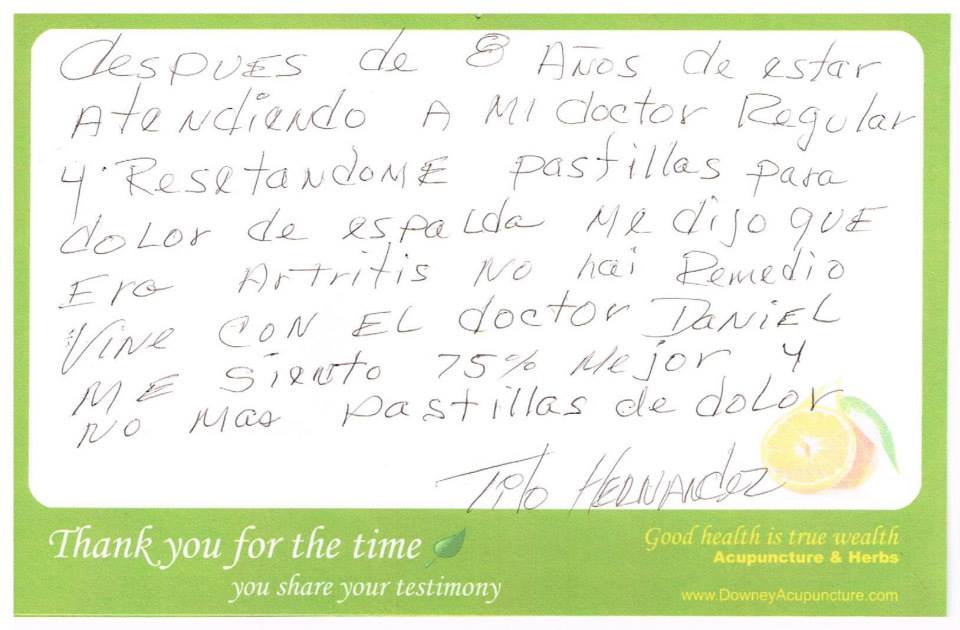 despues de 8 Años de estar
Atendiendo A Mi doctor Regular
y Resetandome pastillas para
dolor de espalda Me dijo que
Era Artritis No hai Remedio
Vine con el doctor Daniel
Me siento 75% Mejor y
no mas pastillas de dolor
Tito Hernandez
Thank you for the time
you share your testimony
Good health is true wealth
Acupuncture & Herbs
www.DowneyAcupuncture.com